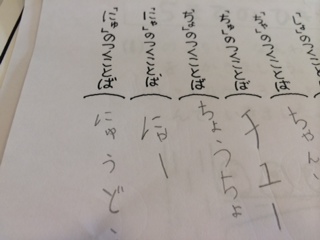 「ちゃ」のつくことば（ちゃん、
「ちゅ」のつくことば（チュー
「ちょ」のつくことば（ちょうちょ
「にゃ」のつくことば（にゃー
「にゅ」のつくことば（にゅうど、